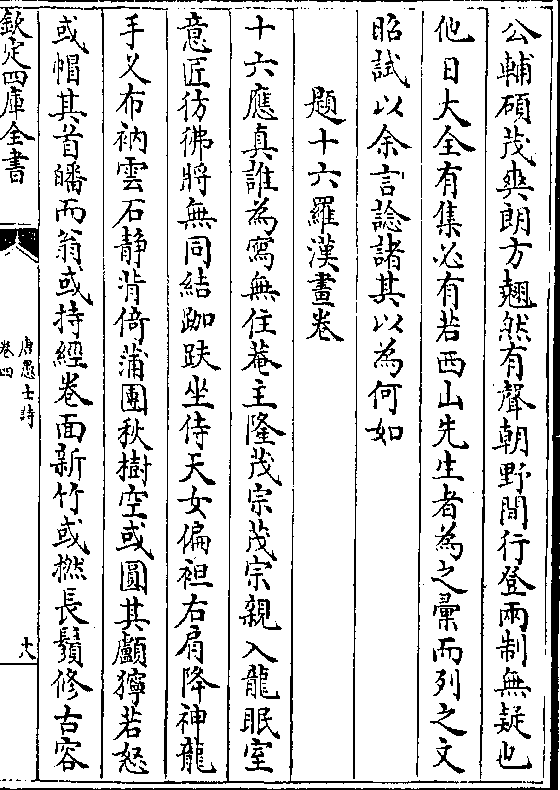 公輔碩茂爽朗方翹然有聲朝野間行登兩制無疑也
他日大全有集必有若西山先生者為之彚而列之文
昭試以余言諗諸其以為何如
題十六羅漢畫卷
十六應真誰為寫無住菴主隆茂宗茂宗親入龍眠室
意匠彷彿將無同結跏趺坐侍天女偏袒右肩降神龍
手义布衲雲石静背倚蒲團秋樹空或圓其顱獰若怒
或帽其首皤而翁或持經卷面新竹或撚長鬚修古容
欽定四庫全書
唐愚士詩
卷四